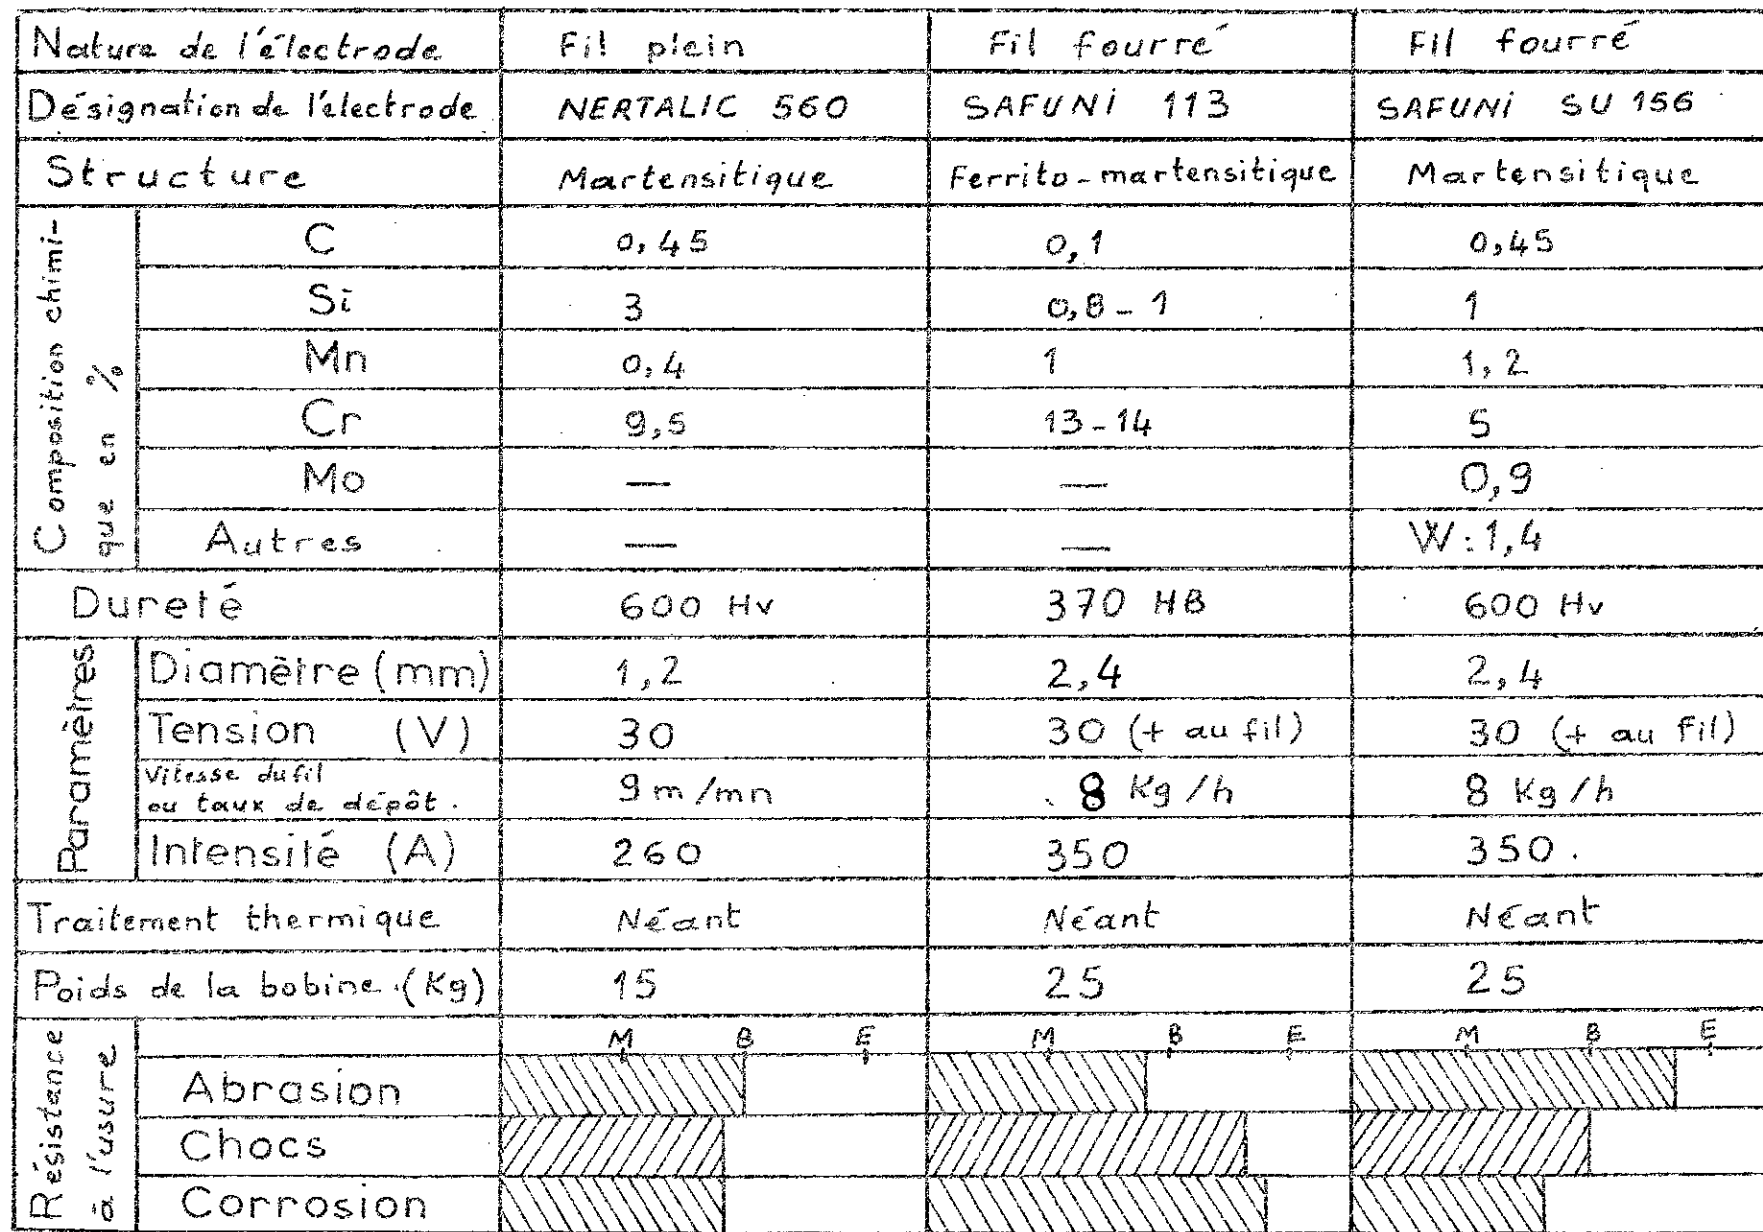 Nature de l'électrode Fil plein Fil fourré Fil fourré
Désignation de l'électrode NERTALIC 560 SAFUNI 113 SAFUNI SU 156
Structure Martensitique Ferrito-martensitique Martensitique
Composition chimi-
que en %
C 0,45 0,1 0,45
Si 3 0,8-1 1
Mn 0,4 1 1,2
Cr 9,5 13-14 5
Mo — — 0,9
Autres — — W:1,4
Dureté 600 Hv 370 HB 600 Hv
Paramètres
Diamètre (mm) 1,2 2,4 2,4
Tension (V) 30 30 (+ au fil) 30 (+ au fil)
Vitesse du fil
ou taux de dépôt. 9 m/mn 8 Kg/h 8 Kg/h
Intensité (A) 260 350 350.
Traitement thermique Néant Néant Néant
Poids de la bobine.(Kg) 15 25 25
Résistance
à l'usure
M B E M B E M B E
Abrasion
Chocs
Corrosion